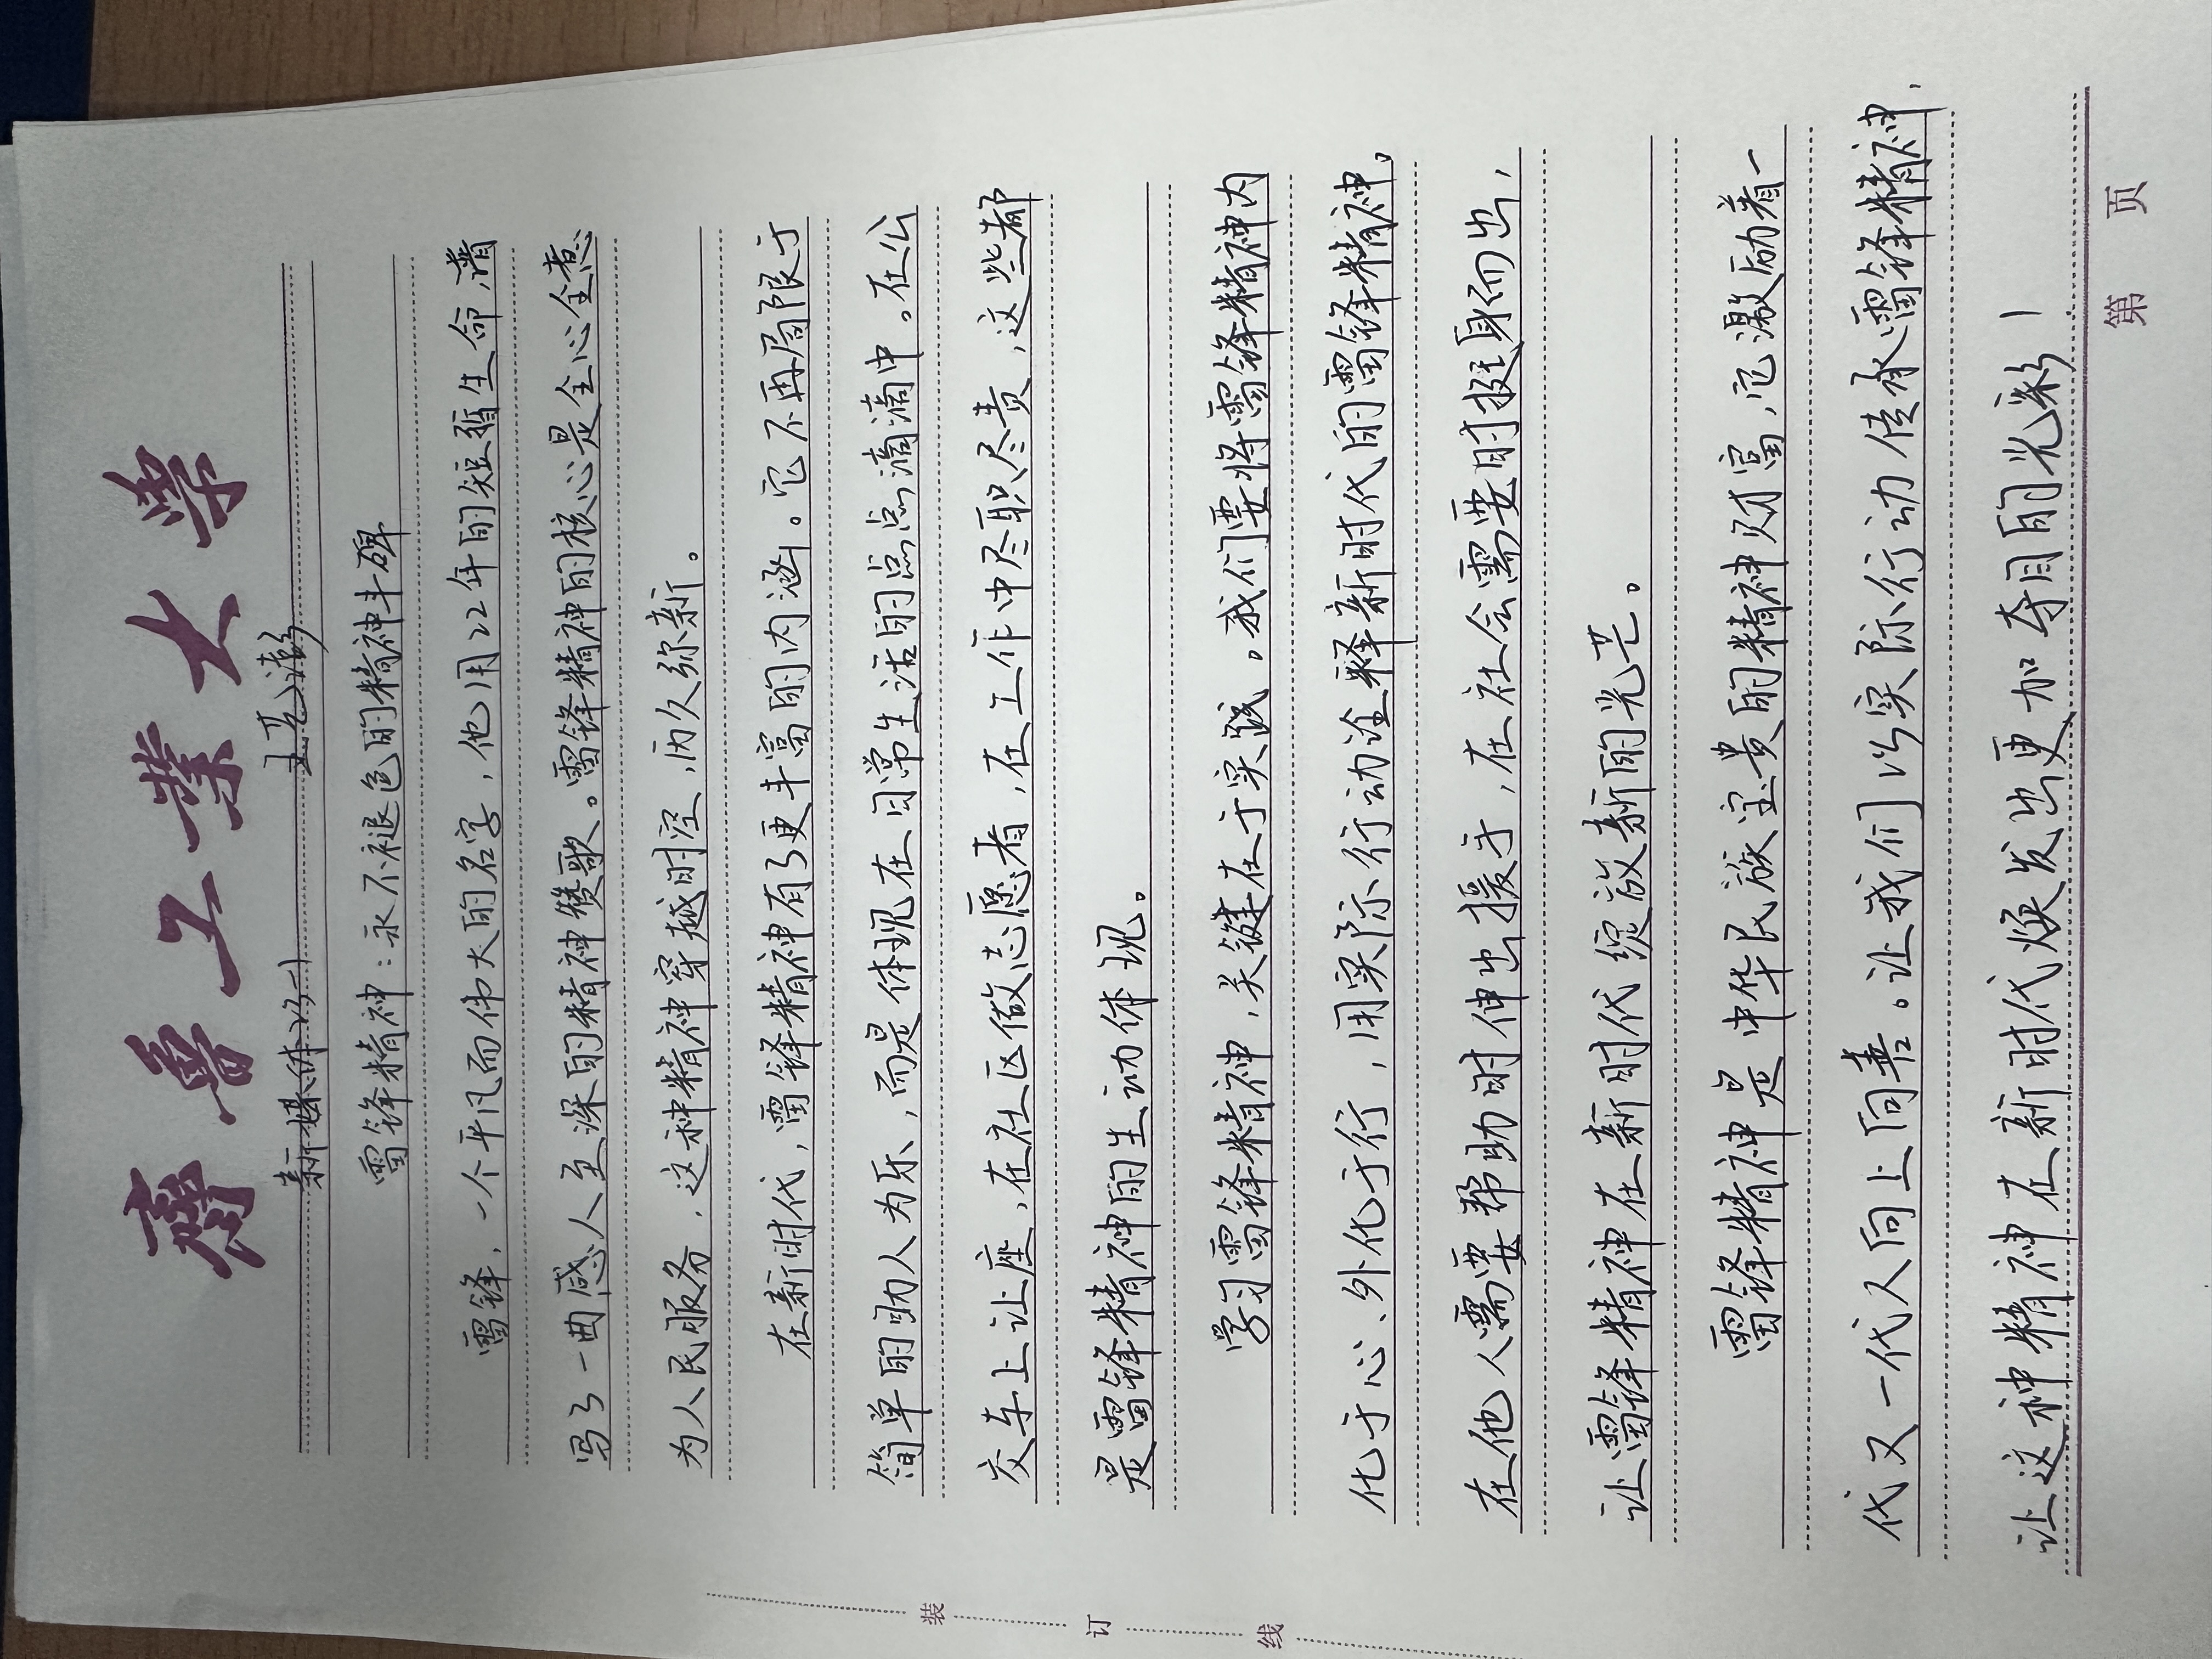 齊魯工業大學
新媒体23-1 王艺潞
雷锋精神：永不褪色的精神丰碑
雷锋，一个平凡而伟大的名字，他用22年的短暂生命，谱
写了一曲感人至深的精神赞歌。雷锋精神的核心是全心全意
为人民服务，这种精神穿越时空，历久弥新。
在新时代，雷锋精神有了更丰富的内涵。它不再局限于
简单的助人为乐，而是体现在日常生活的点点滴滴中。在公
交车上让座，在社区做志愿者，在工作中尽职尽责，这些都
是雷锋精神的生动体现。
学习雷锋精神，关键在于实践。我们要将雷锋精神内
化于心、外化于行，用实际行动诠释新时代的雷锋精神。
在他人需要帮助时伸出援手，在社会需要时挺身而出，
让雷锋精神在新时代绽放新的光芒。
雷锋精神是中华民族宝贵的精神财富，它激励着一
代又一代人向上向善。让我们以实际行动传承雷锋精神，
让这种精神在新时代焕发出更加夺目的光彩！
第 页
装 订 线